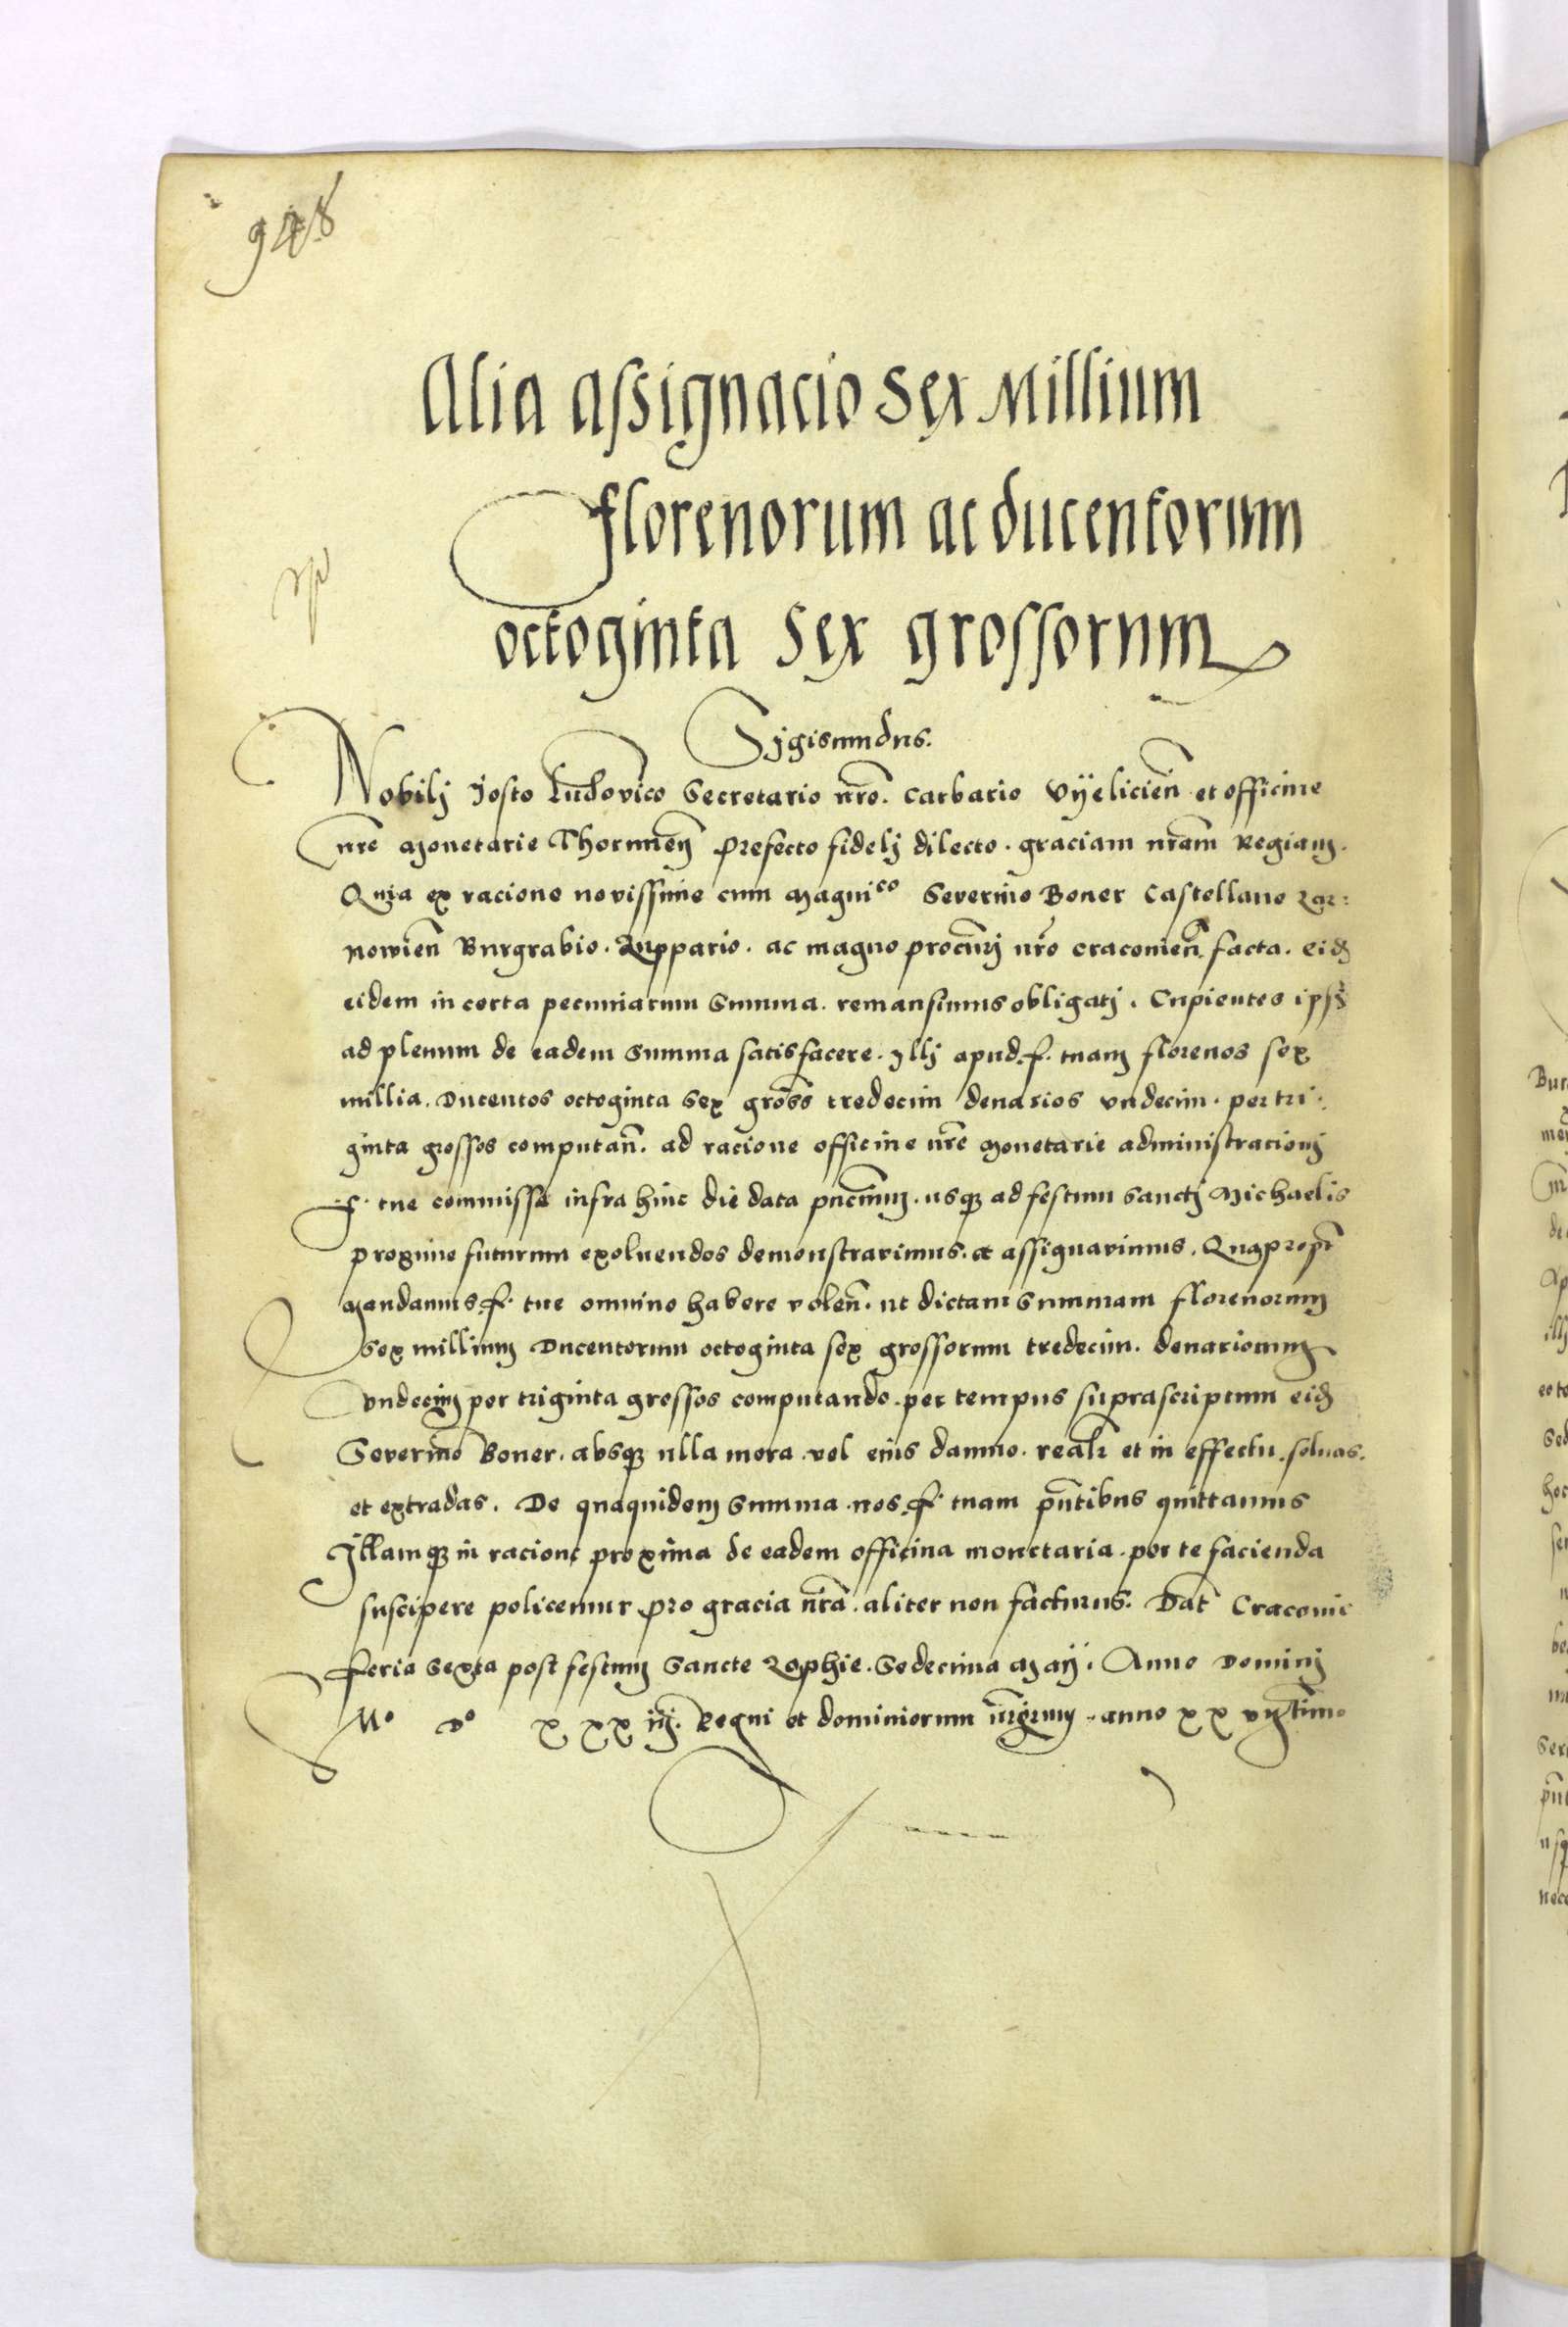 948
Alia assignacio Sex Millium
florenorum ac ducentorum
octoginta Sex grossorum
Sigismundus.
Nobilj Josto Ludovico Secretario nrõ. carbario Vyelicieñ et officine
nrẽ Monetarie Thorunieñ prefecto fidelj dilecto. graciam nrãm Regiam.
Quia ex racione novissime cum Magnico Severino Boner Castellano Zar:
nowieñ Burgrabio. Zuppario. ac magno procurj nrõ cracovieñ facta. eid
eidem in certa pecuniarum Summa. remansimus obligatj. Cupientes ipsi
ad plenum de eadem Summa satisfacere. Illj apud. f. tuam florenos sex
millia. Ducentos octoginta Sex gross tredecim denarios vndecim. per tri.
ginta grossos computañ. ad racione officine nrẽ Monetarie administracionj
f. tue commisse infra hinc die data pñcium. usq ad festum Sanctj Michaelis
proxime futurum exoluendos demonstravimus. et assignavimus. Quapropt
Mandamus. f. tue omnino habere voleñ. ut dictam Summam florenorum
Sex millium Ducentorum octoginta sex grossorum tredecim. denariorum
vndecim per triginta grossos computando. per tempus suprascriptum eid
Severino Boner. absq ulla mora. vel eius damno. realr et in effectu. soluas.
et extradas. De quaquidem Summa. nos. f. tuam pñtibus quittamus
Illamq in racione proxima de eadem officina monetaria. per te facienda
suscipere policemur pro gracia nrã. aliter non facturus. Dat Cracovie
feria Sexta post festum Sancte Zophie. Sedecima Maij. Anno Dominj
Mo Do XXXiij. Regni et dominiorum nrõrum. anno XX vijtimo